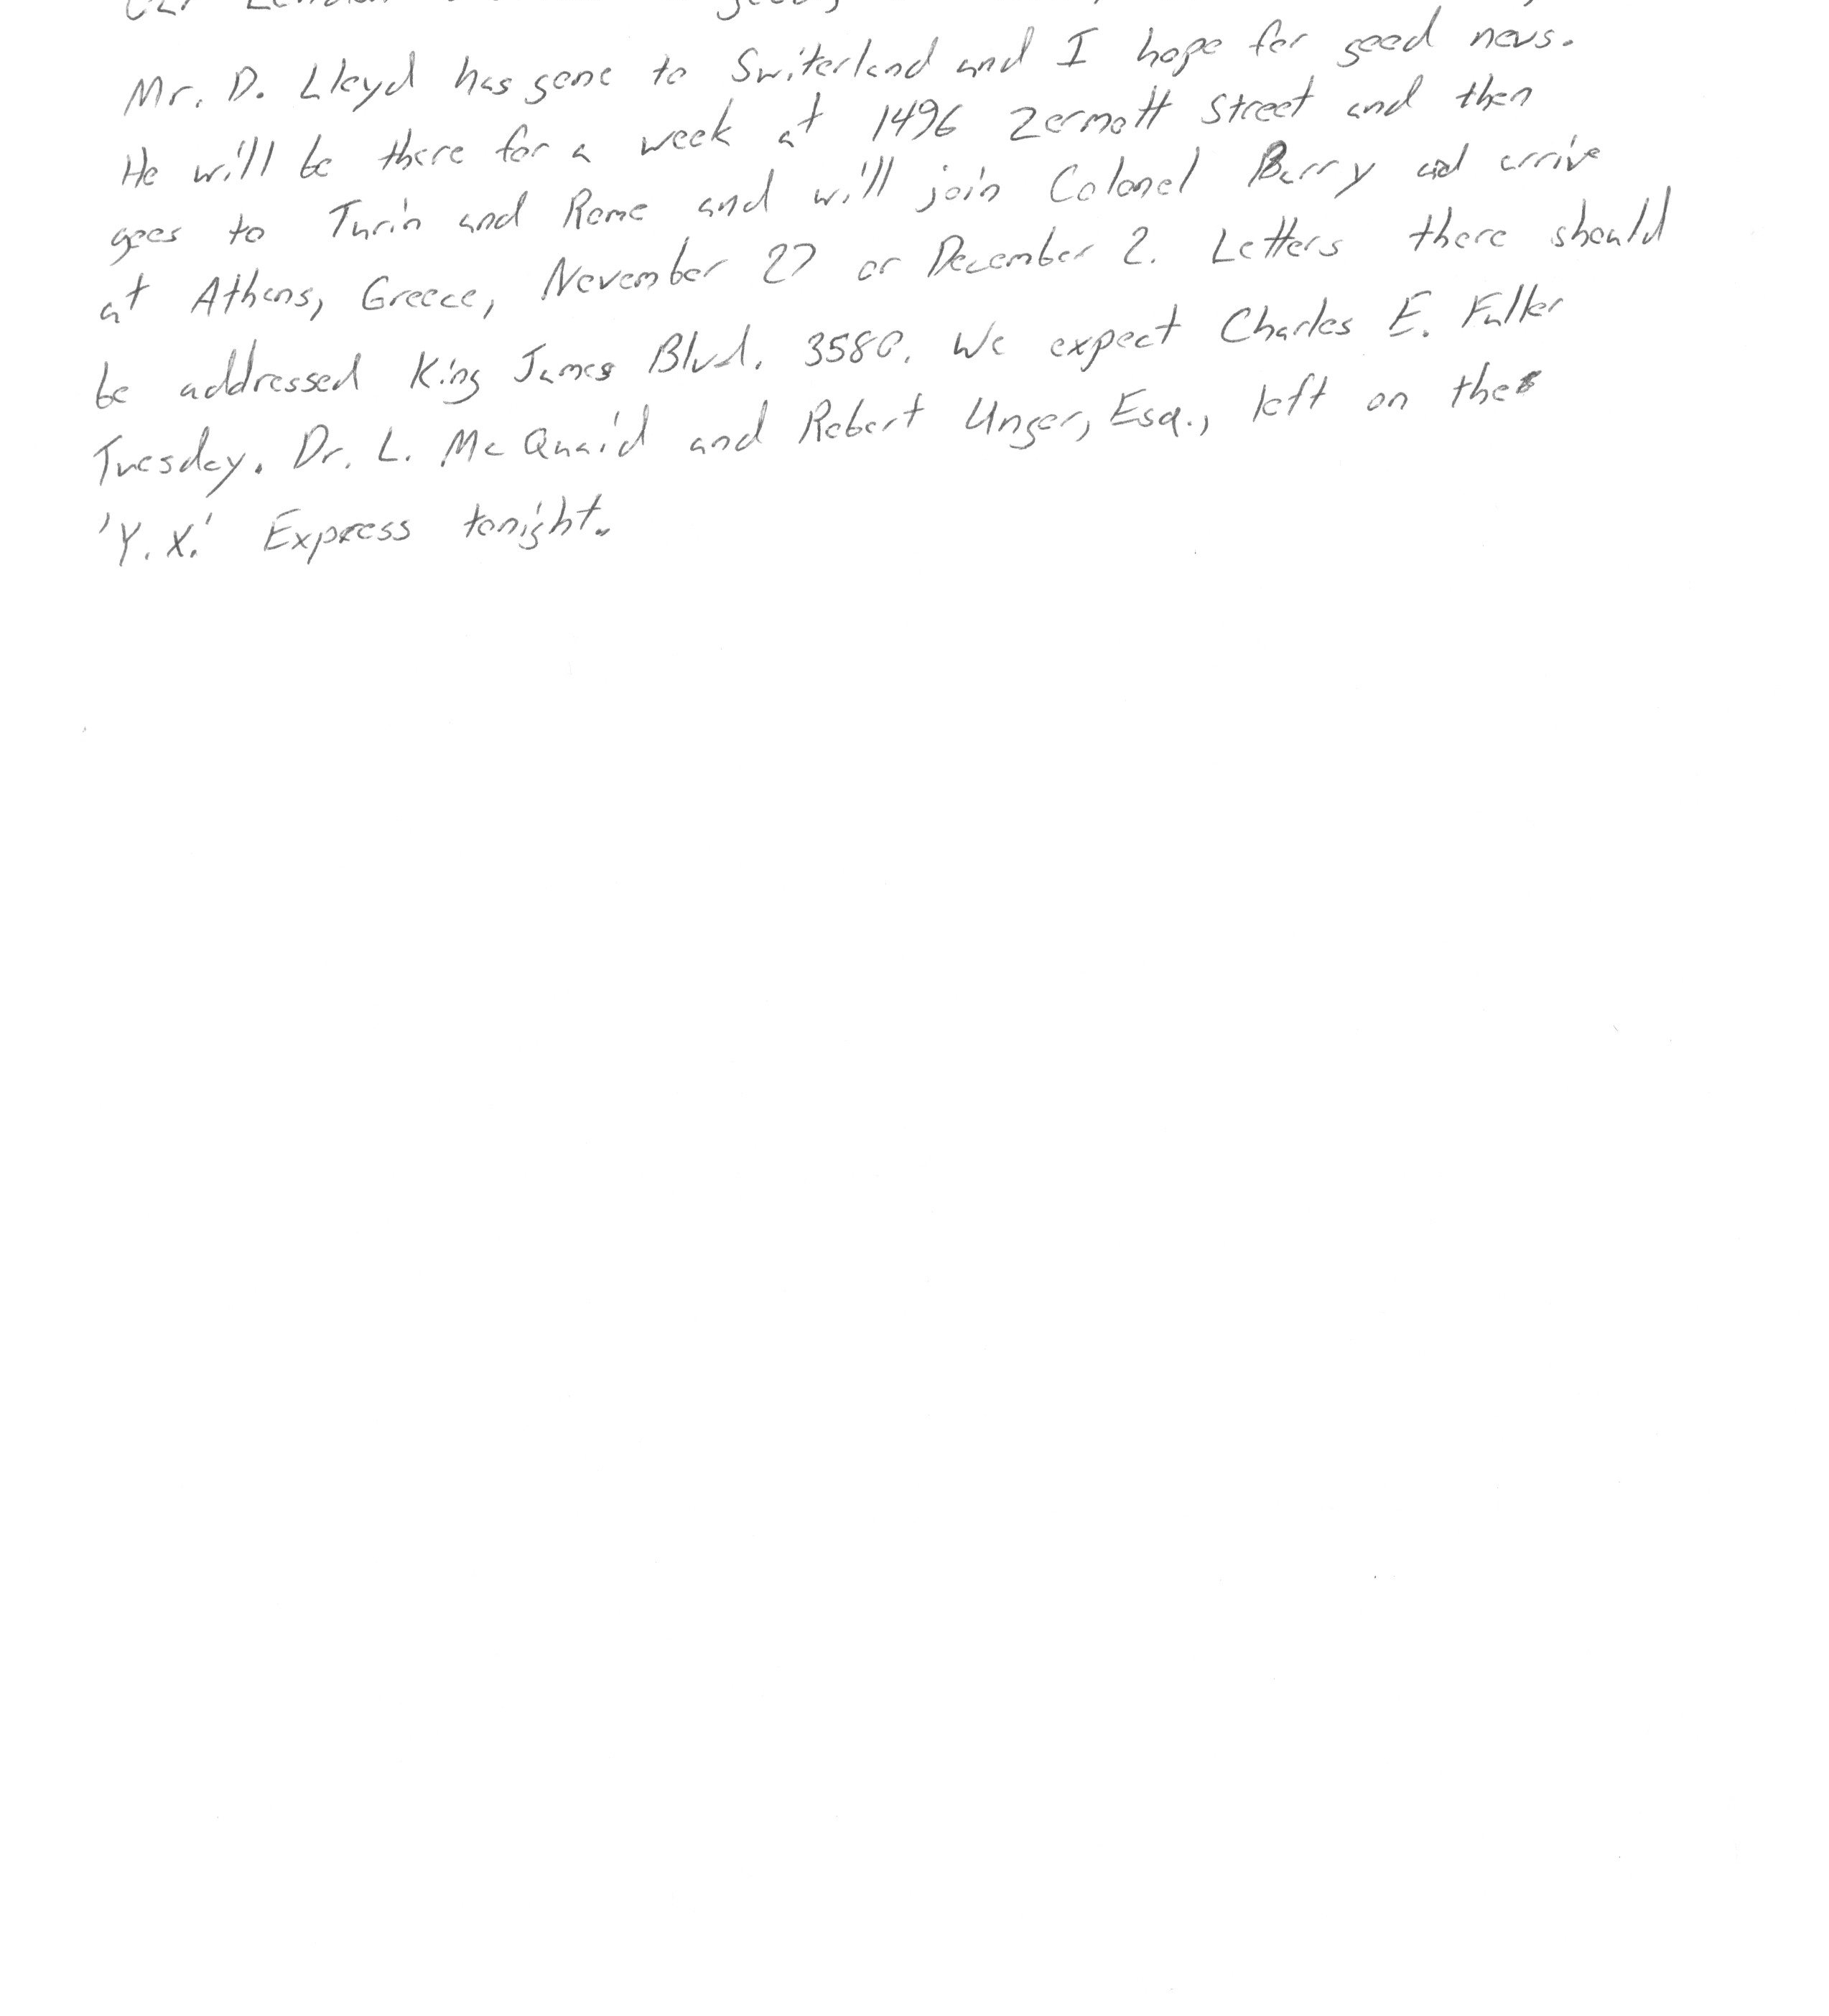 Mr. D. Lloyd has gone to Switerland and I hope for good news.
He will be there for a week at 1496 Zermott Street and then
goes to Turin and Rome and will join Colonel Barry and arrive
at Athens, Greece, November 27 or December 2. Letters there should
be addressed King James Blvd. 3580. We expect Charles E. Fuller
Tuesday. Dr. L. McQuaid and Robert Unger, Esq., left on the
'Y.X.' Express tonight.